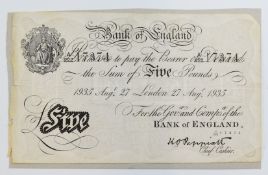 Bank of England
to pay the Bearer on
the Sum of Five Pounds
1935 Augt. 27 London 27 Augt. 1935
For the Govr. and Compa. of the
Five
BANK OF ENGLAND.
K O Peppiatt
Chief Cashier.